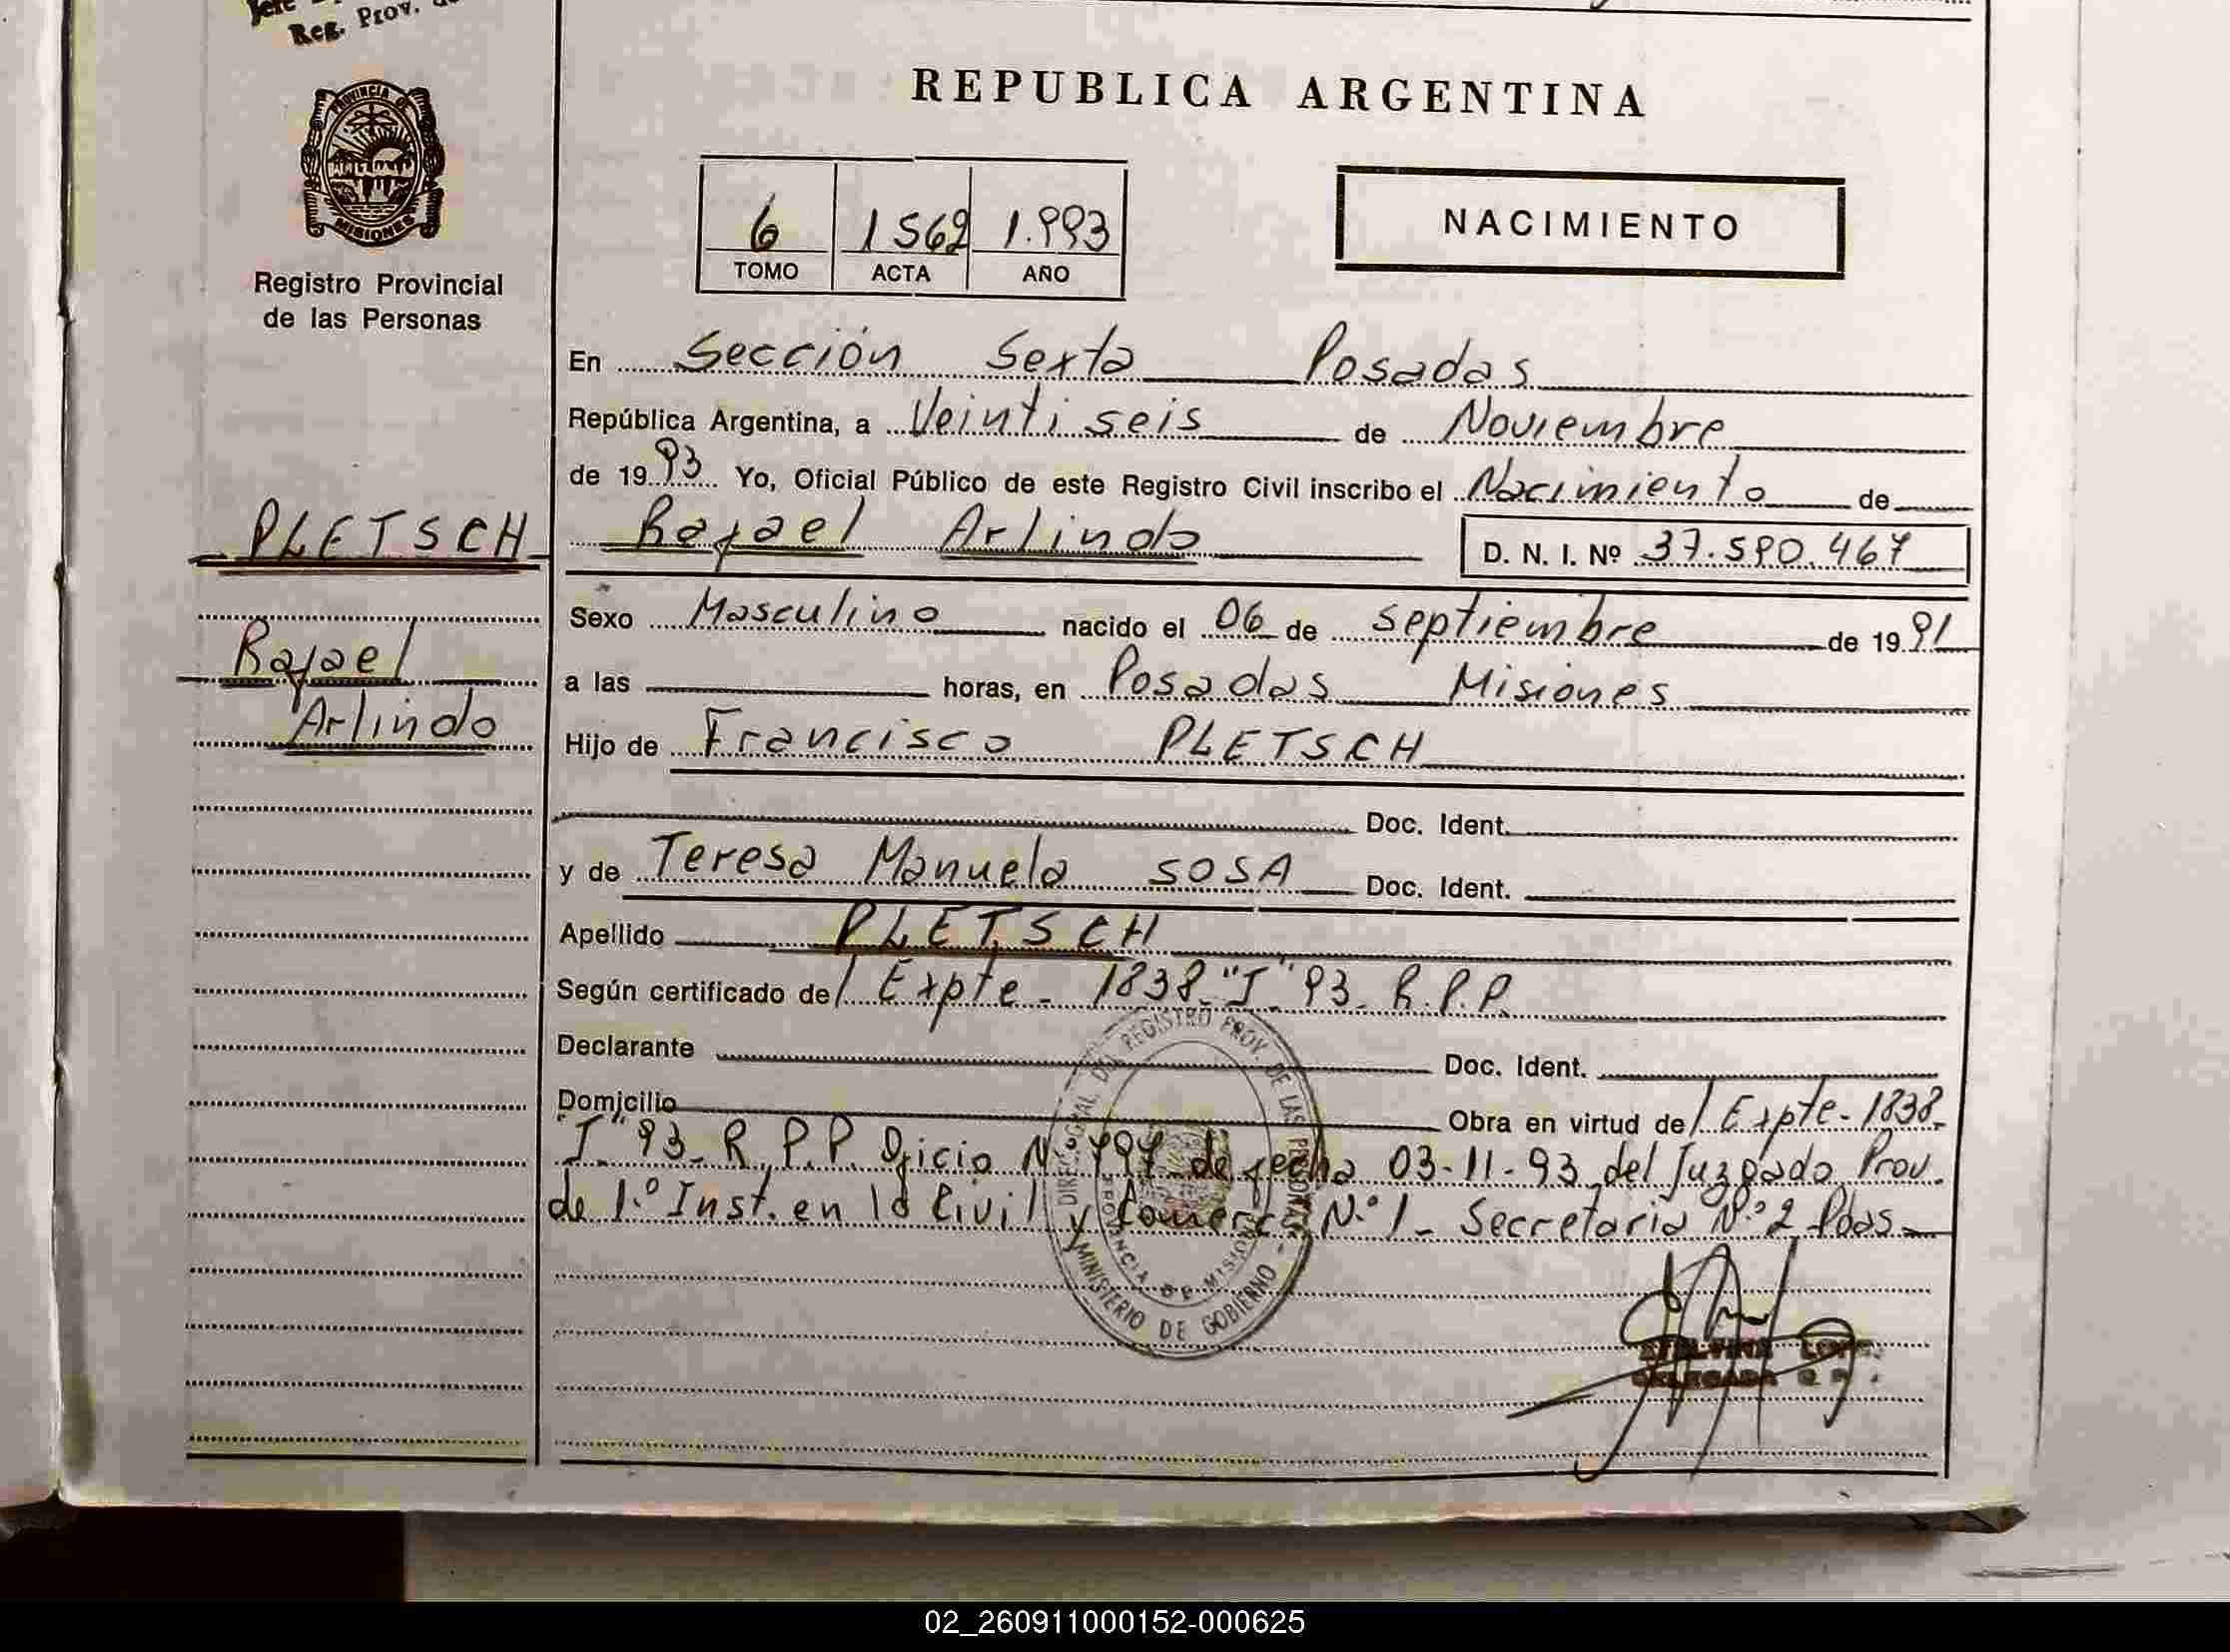 Reg. Prov.
REPUBLICA ARGENTINA
PROVINCIA DE
MISIONES
Registro Provincial
de las Personas
6 1562 1.993
TOMO ACTA AÑO
NACIMIENTO
En Sección Sexta Posadas
República Argentina, a Veinti seis de Noviembre
de 1993 Yo, Oficial Público de este Registro Civil inscribo el Nacimiento de
PLETSCH Rafael Arlindo D. N. I. Nº 37.590.467
Sexo Masculino nacido el 06 de septiembre de 1991
Rafael
a las horas, en Posadas Misiones
Arlindo
Hijo de Francisco PLETSCH
Doc. Ident.
y de Teresa Manuela SOSA Doc. Ident.
Apellido PLETSCH
Según certificado de/ Expte - 1838 "I" 93 - R.P.P.
Declarante Doc. Ident.
Domicilio Obra en virtud de/ Expte - 1838-
"I" 93 - R.P.P. Oficio Nº 797 de fecha 03-11-93 del Juzgado Prov.
de 1º Inst. en lo Civil y Comerc. N.º 1 - Secretaria N.º 2 Pdas-
REGISTRO PROV. DE LAS PERSONAS
PROVINCIA DE MISIONES
MINISTERIO DE GOBIERNO
02_260911000152-000625